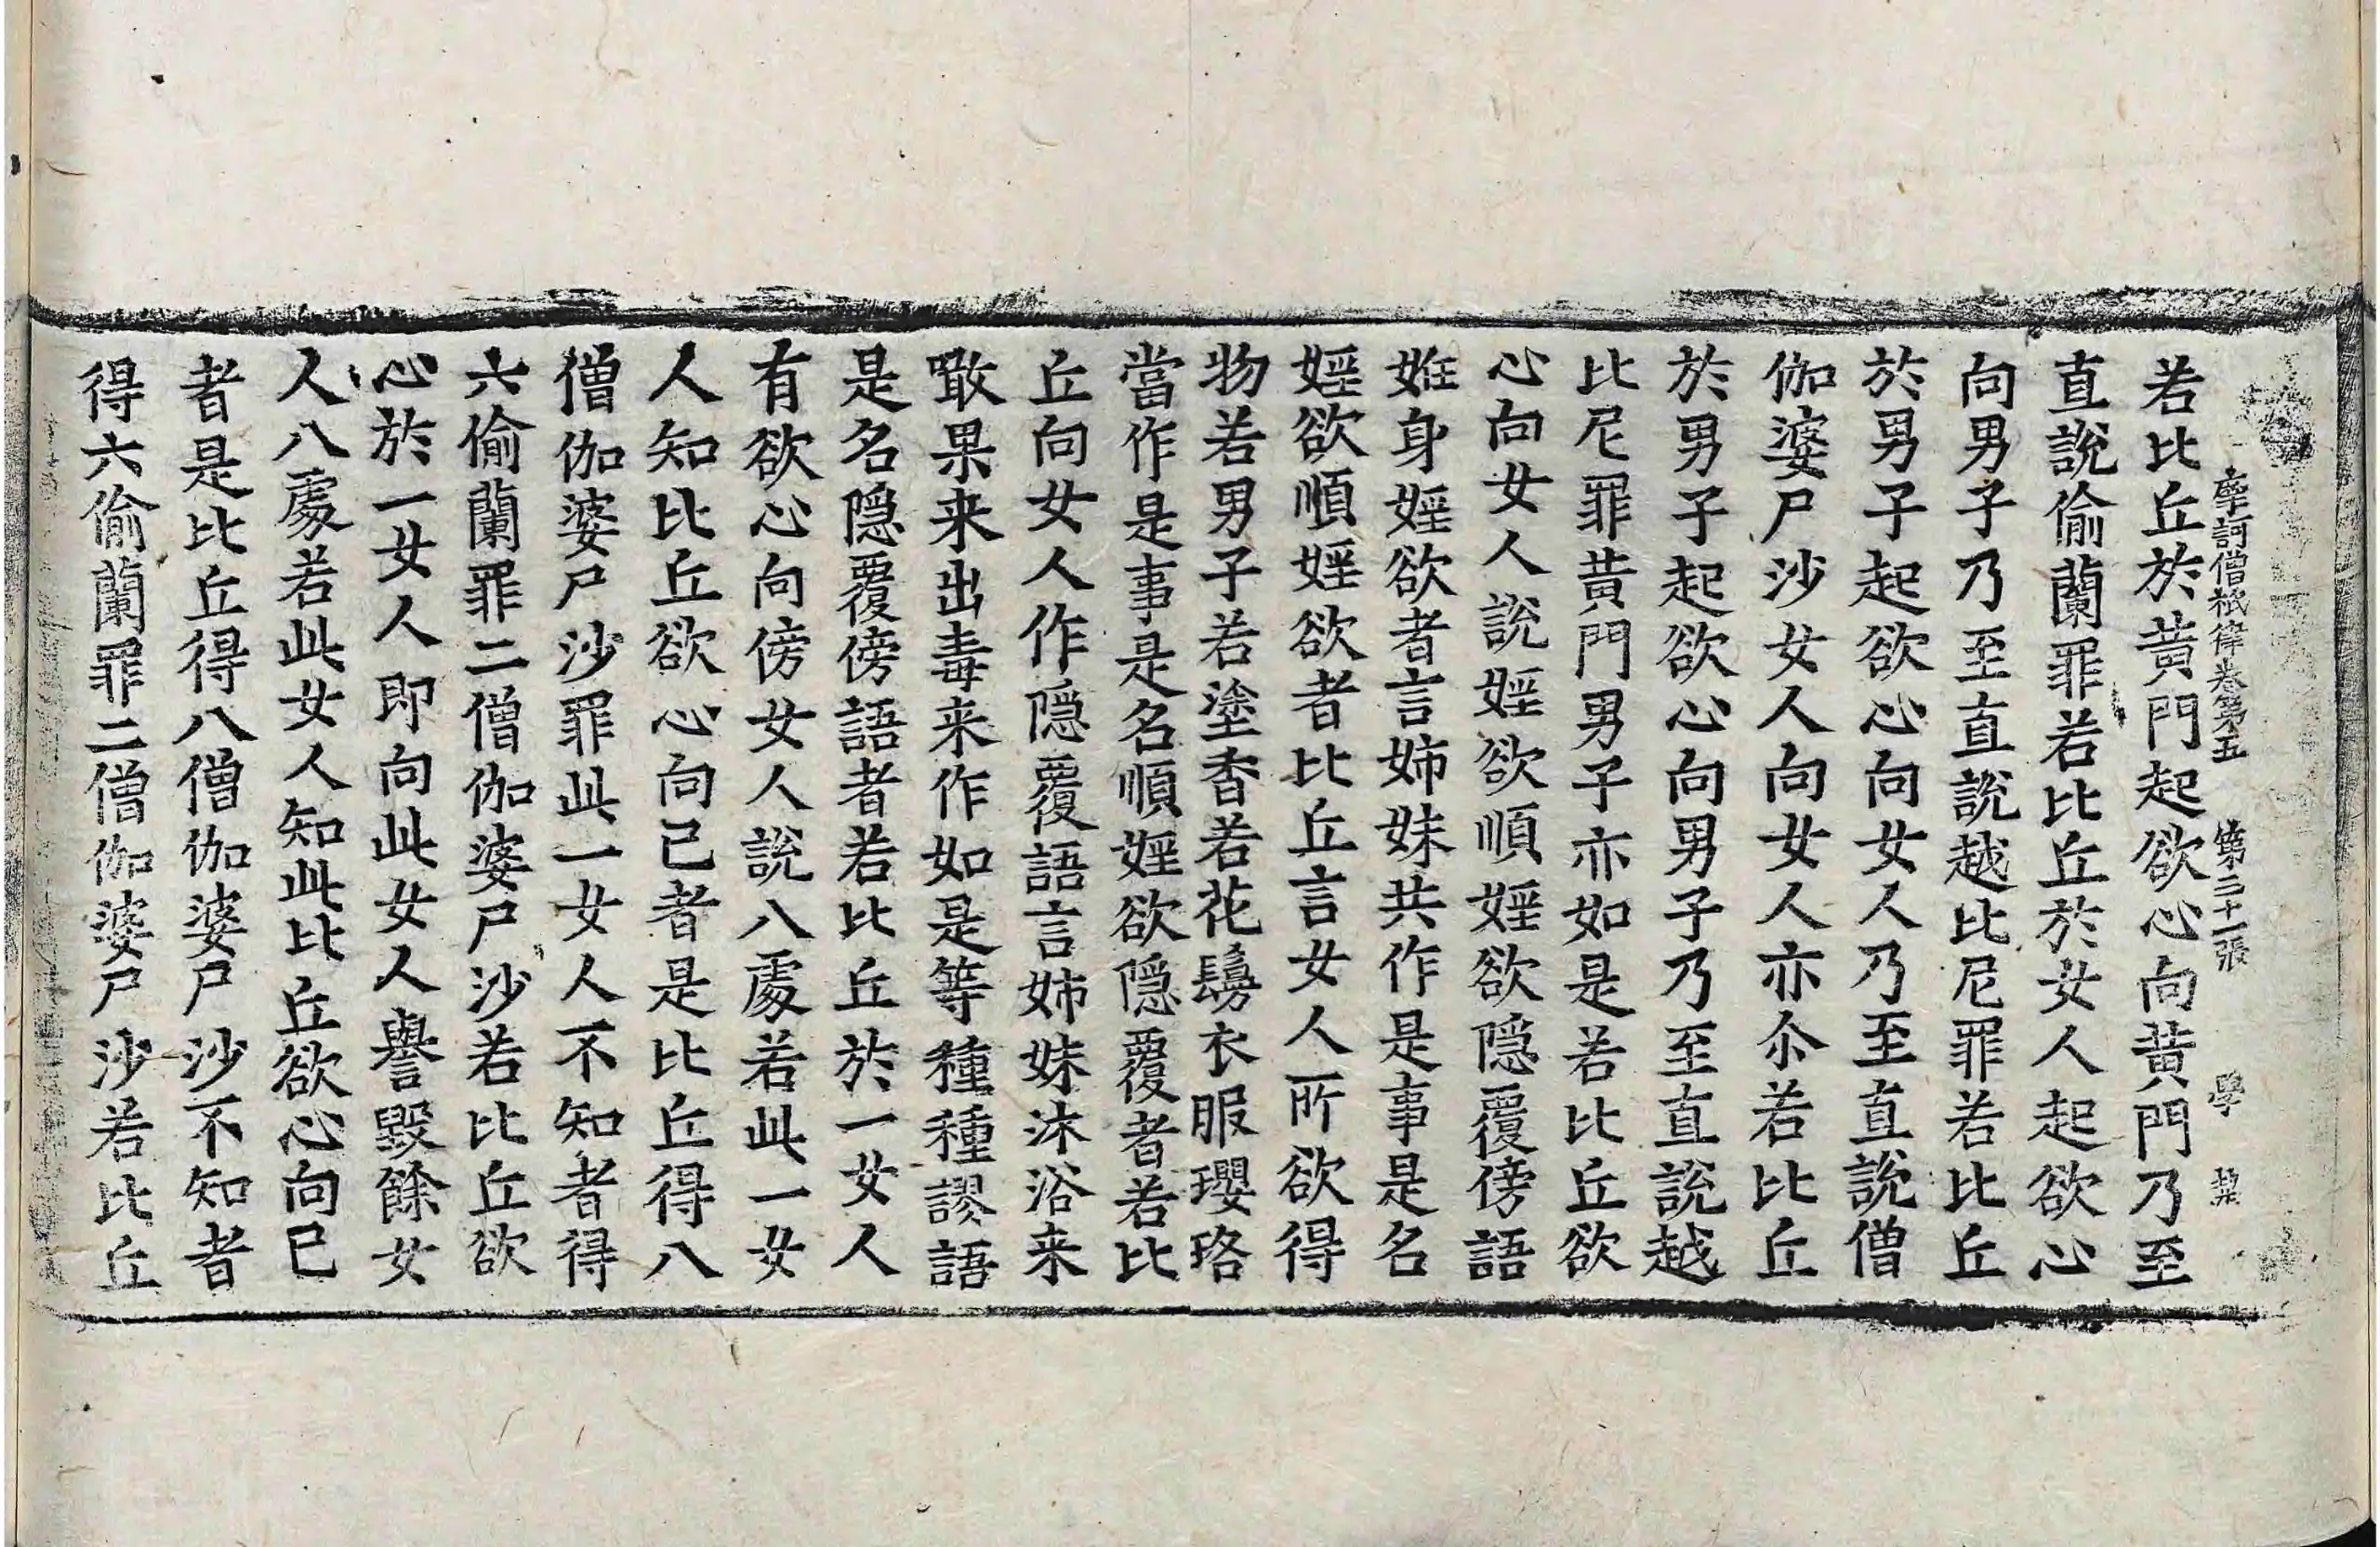 摩訶僧祇律卷第五 第二十一張 學
若比丘於黄門起欲心向黄門乃至
直説偷蘭罪若比丘於女人起欲心
向男子乃至直説越比尼罪若比丘
於男子起欲心向女人乃至直説僧
伽婆尸沙女人向女人亦尒若比丘
於男子起欲心向男子乃至直説越
比尼罪黄門男子亦如是若比丘欲
心向女人説婬欲順婬欲隠覆傍語
婬身婬欲者言姊妹共作是事是名
婬欲順婬欲者比丘言女人所欲得
物若男子若塗香若花鬘衣服瓔珞
當作是事是名順婬欲隠覆者若比
丘向女人作隠覆語言姊妹沐浴来
噉果来出毒来作如是等種種謬語
是名隠覆傍語者若比丘於一女人
有欲心向傍女人説八處若此一女
人知比丘欲心向已者是比丘得八
僧伽婆尸沙罪此一女人不知者得
六偷蘭罪二僧伽婆尸沙若比丘欲
心於一女人即向此女人譽毀餘女
人八處若此女人知此比丘欲心向已
者是比丘得八僧伽婆尸沙不知者
得六偷蘭罪二僧伽婆尸沙若比丘